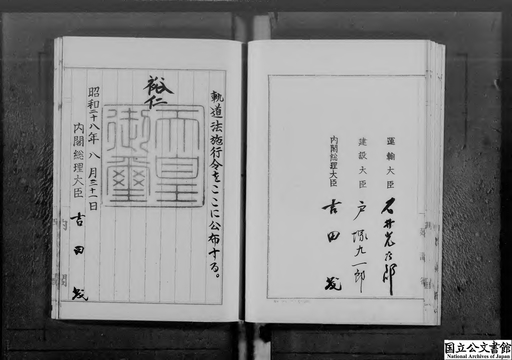 軌道法施行令をここに公布する。
裕仁
天皇御璽
昭和二十八年八月三十一日
内閣総理大臣 吉田茂
運輸大臣 石井光次郎
建設大臣 戸塚九一郎
内閣総理大臣 吉田茂
国立公文書館
National Archives of Japan